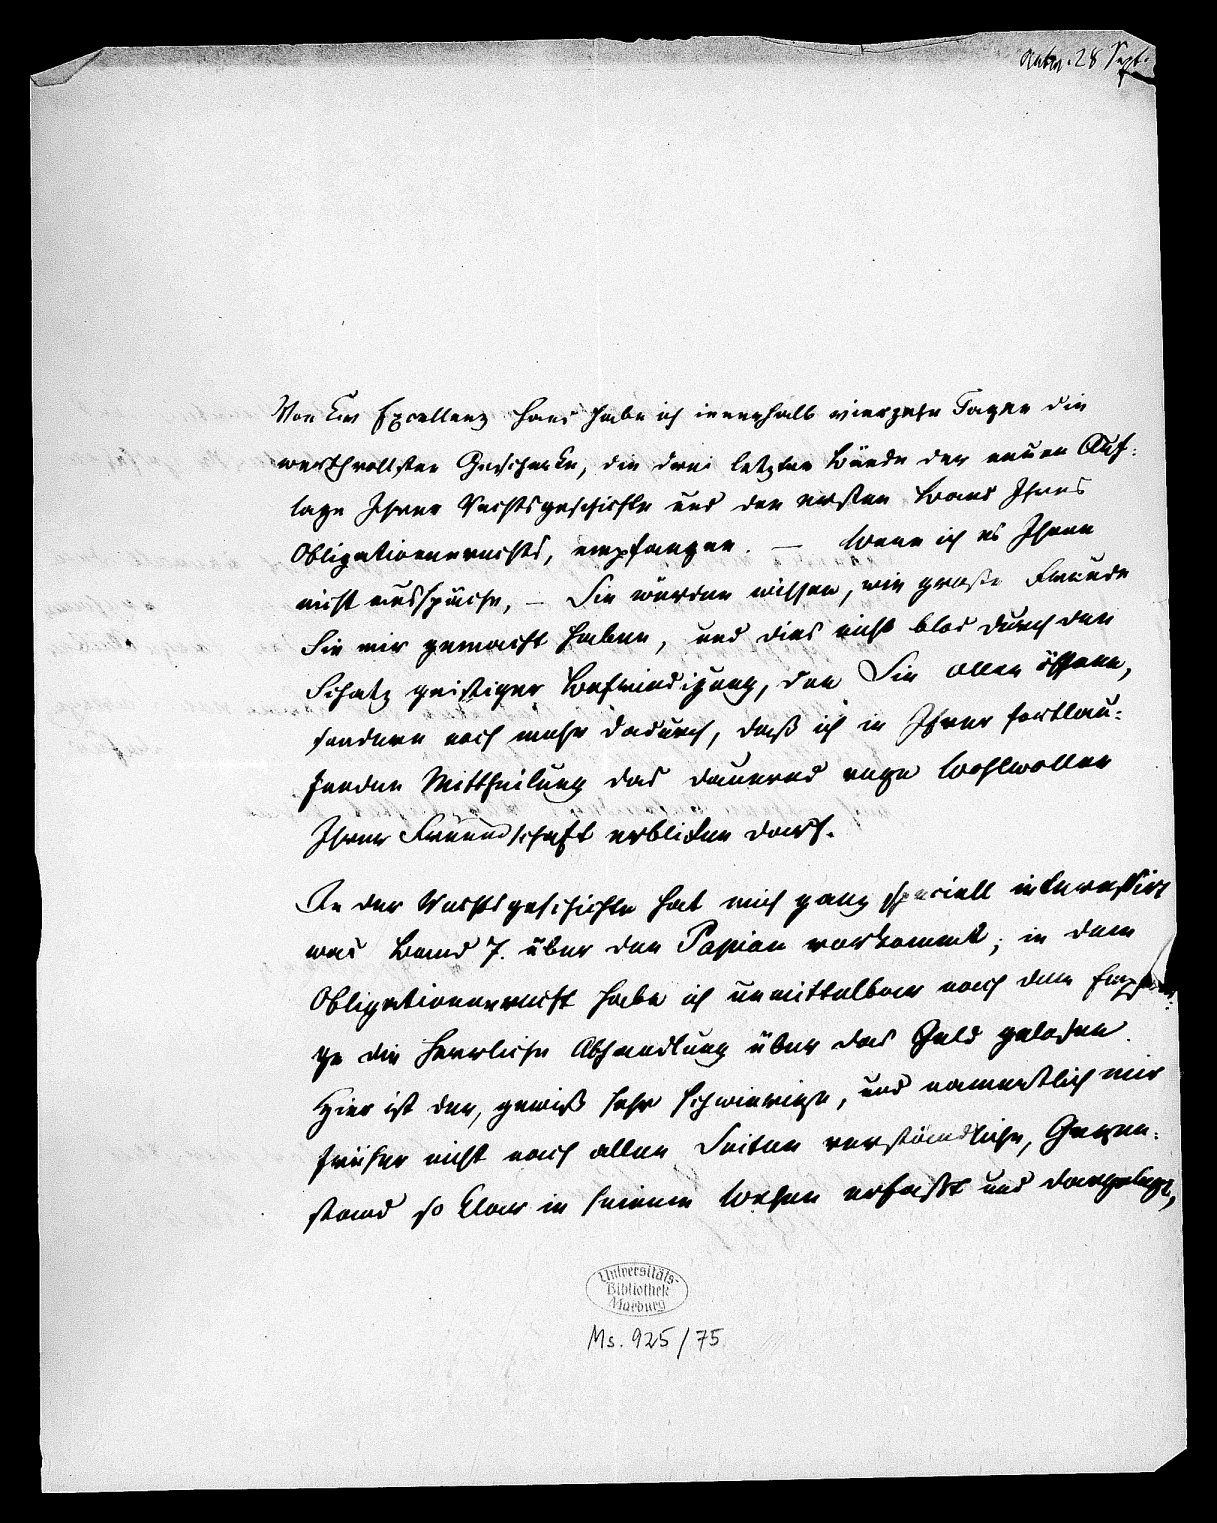 Antw. 28 Sept.
Von Ew Excellenz Hand habe ich innerhalb vierzehn Tagen die
werthvollsten Geschenke, die drei letzten Bände der neuen Auf-
lage Ihrer Rechtsgeschichte und den ersten Band Ihres
Obligationenrechts, empfangen. — Wenn ich es Ihnen
nicht ausspräche, – Sie würden wissen, wie große Freude
Sie mir gemacht haben, und dies nicht blos durch den
Schatz geistiger Befriedigung, den Sie Allen öffnen,
sondern noch mehr dadurch, daß ich in Ihrer fortlau-
fenden Mittheilung das dauernd rege Wohlwollen
Ihrer Freundschaft erblicken darf.
In der Rechtsgeschichte hat mich ganz speciell interessirt
was Band 7. über den Papian vorkommt; in dem
Obligationenrecht habe ich unmittelbar nach dem Empfan-
ge die herrliche Abhandlung über das Geld gelesen.
Hier ist der, gewiß sehr schwierige, und namentlich mir
früher nicht nach allen Seiten verständliche, Gegen-
stand so klar in seinem Wesen erfaßt und dargelegt,
Universitäts-
Bibliothek
Marburg
Ms. 925/75